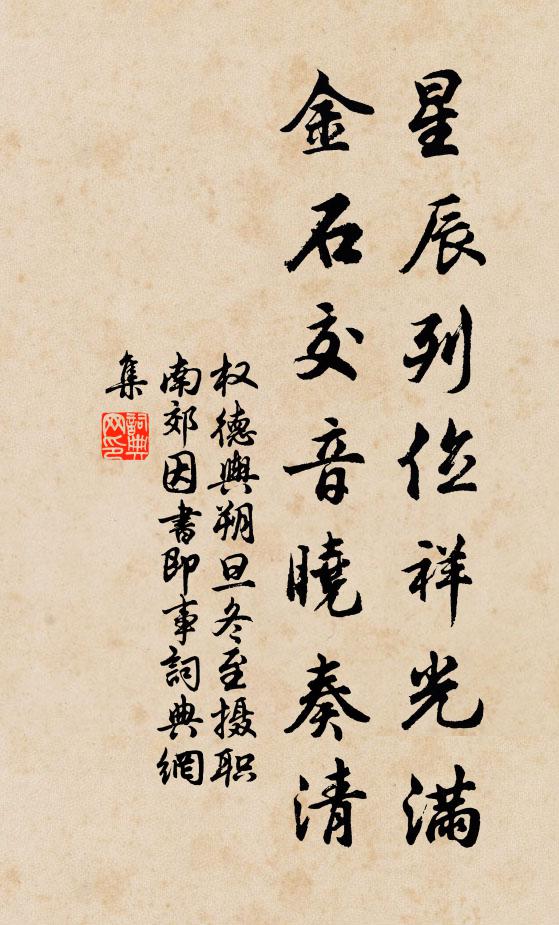 星辰列位祥光满
金石交音曉奏清
权德輿朔旦冬至摄职
南郊因書即事詞典網
集
詞典网印